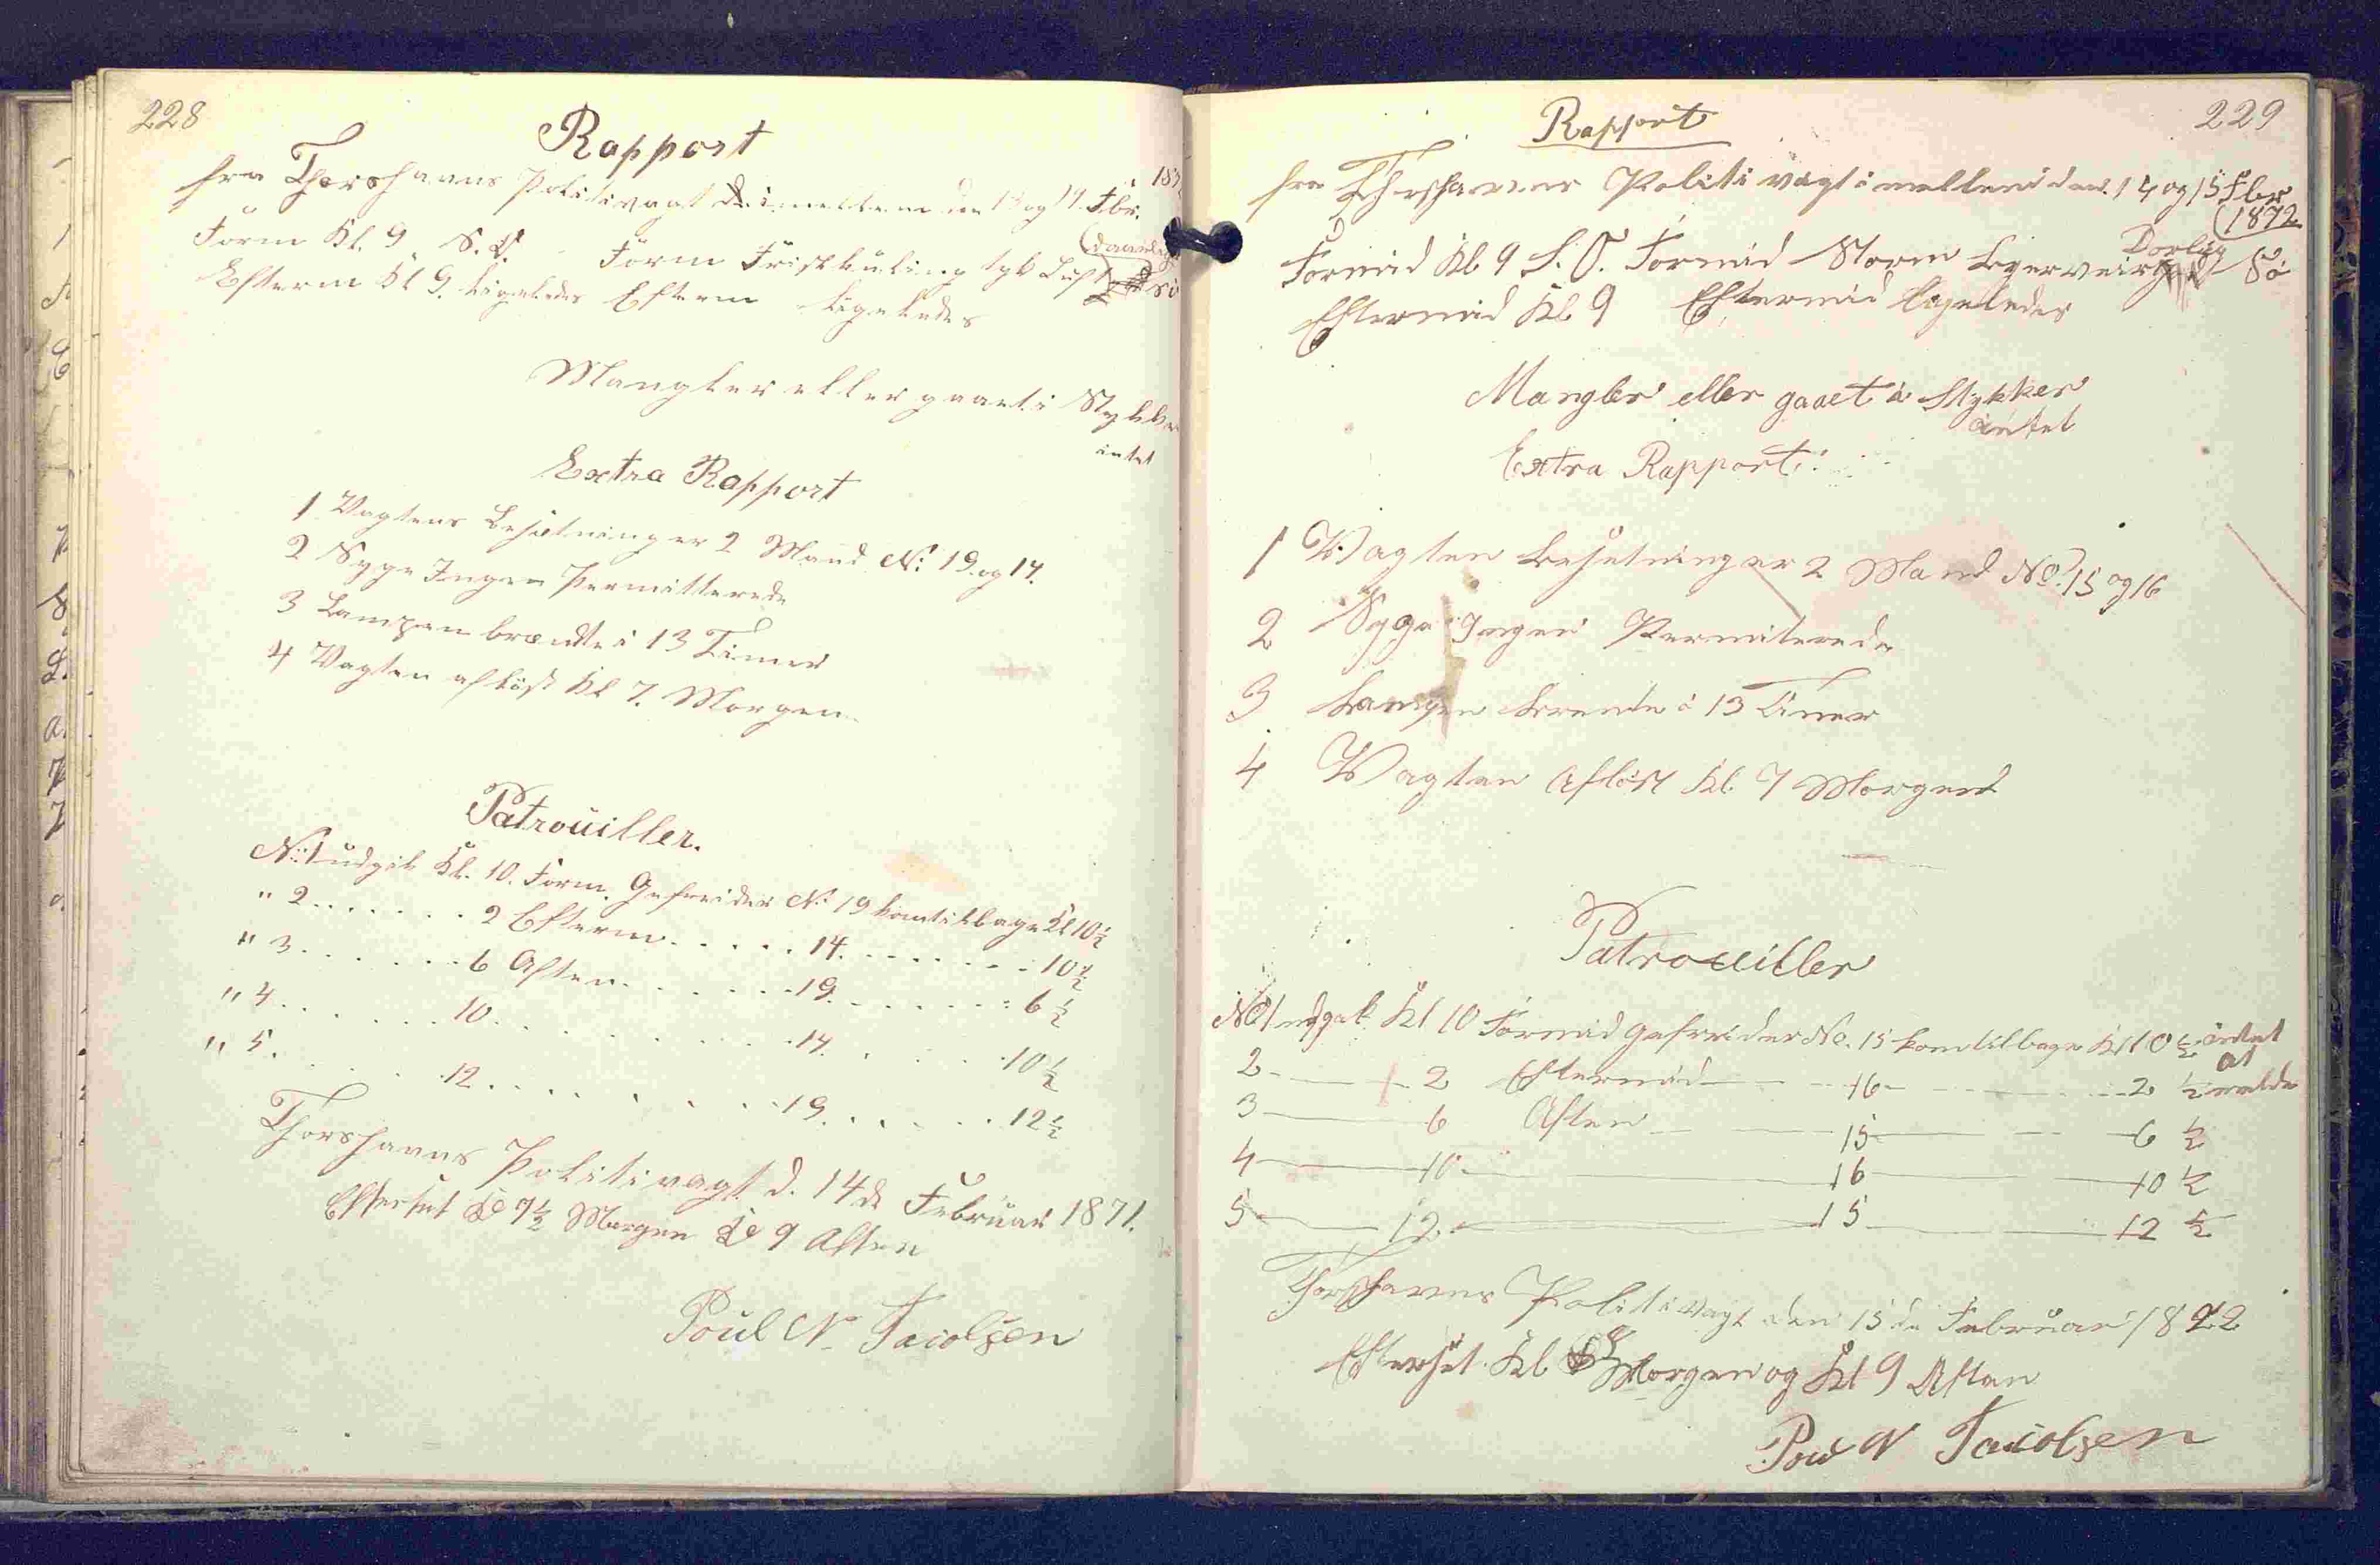 228
Rapport
fra Thorshavns Politivagt imellem den 13 og 14. Fbr. 187
Form Kl. 9. S. O. Form Friskkuling tyk Luft
(daarlig
Efterm Kl 9. ligeledes Efterm ligeledes
Mangler eller gaaet i Stykker
intet
Extra Rapport
1 Vagtens Besætning er 2 Mand No 19. og 14.
2 Syge Ingen Permitterede
3 Lampen brændte i 13 Timer
4 Vagten afløst Kl 7. Morgen
Patrouiller.
No 1 udgik Kl. 10. Form. Gefreider No 19 kom tilbage Kl 10½
" 2 . . . . . . . 2 Efterm . . . . . 14. . . . . . . . 10½
" 3 . . . . . . . 6 Aften . . . . . . 19. . . . . . . . 6½
" 4 . . . . . . . 10 . . . . . . . . . 14. . . . . . . 10½
" 5. . . . . . 12 . . . . . . . . 19. . . . . . 12½
Thorshavns Politivagt d. 14de Februar 1871.
Efterset Kl 7½ Morgen Kl 9 Aften
Poul N. Jacobsen
229
Rapport
fra Thorshavns Politi vagt imellem den 14 og 15 Fbr
(1872
Formid Kl 9 S. O. Formid Storm Regnveir Dorlig Sö
Eftermid Kl 9 Eftermid ligeledes
Mangler eller gaaet i Stykker
intet
Extra Rapport:
1 Vagten Besetning er 2 Mand No. 15 og 16
2 Syge Ingen Permiterede
3 Lampen brente i 13 Timer
4 Vagten Afløst Kl. 7 Morgen
Patrouiller
No 1 udgik Kl 10 Formid Gefreider No. 15 kom tilbage Kl 10½ intet
at
2 — 2 Eftermid — 16 — 2 ½ melde
3 — 6 Aften — 15 — 6 ½
4 — 10 — 16 — 10 ½
5 — 12 — 15 — 12 ½
Thorshavns Politivagt den 15de Februar 1872
Efterset Kl 8 Morgen og Kl 9 Aften
Poul N Jacobsen